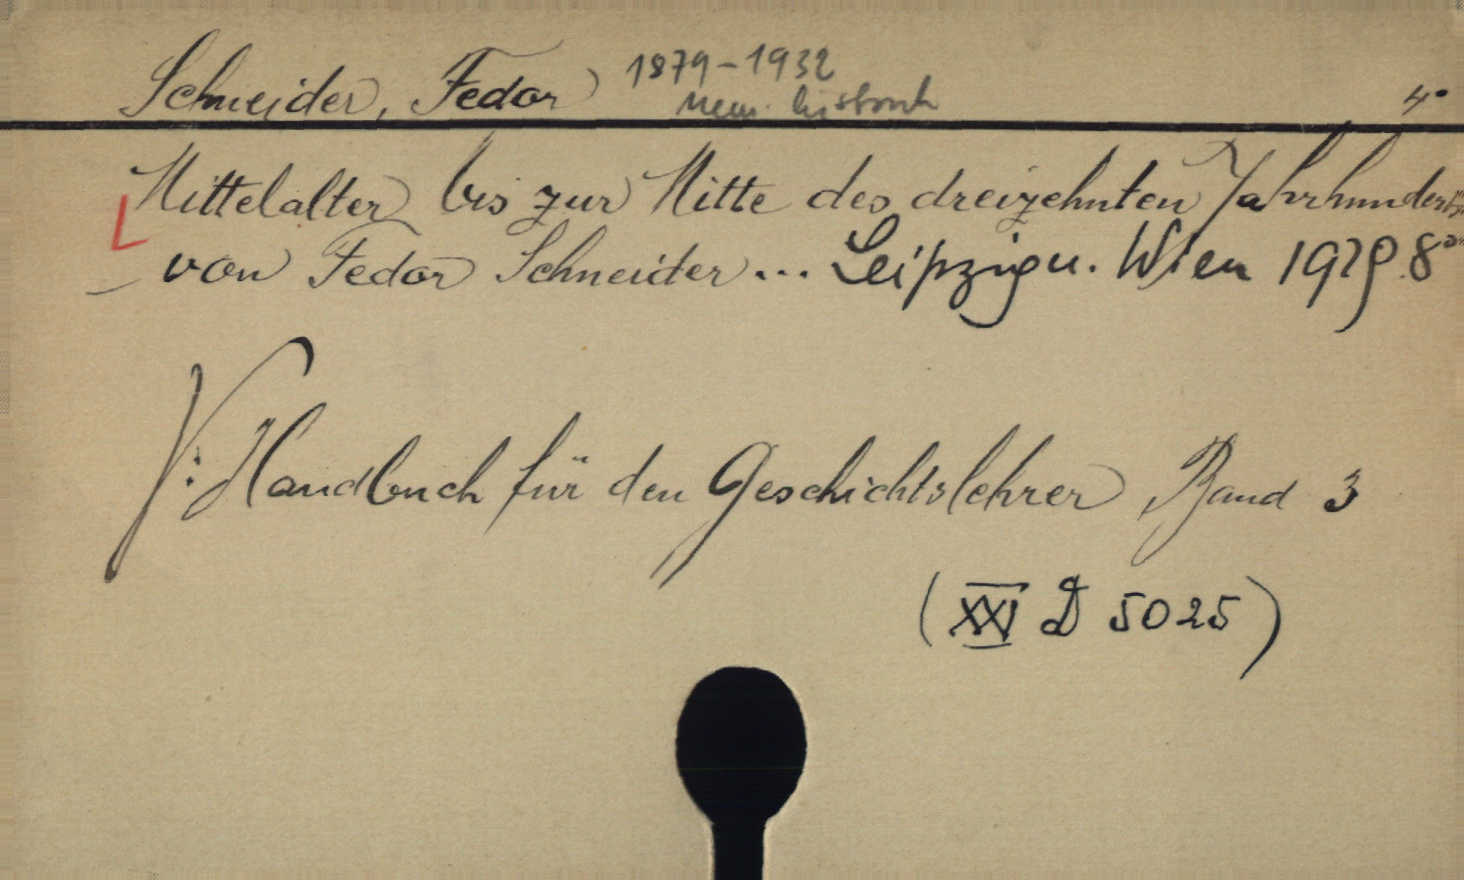 Schneider, Fedor 1879-1932
4°
Mittelalter bis zur Mitte des dreizehnten Jahrhunderts
von Fedor Schneider... Leipzig u. Wien 1929. 8°
V: Handbuch für den Geschichtslehrer Band 3
(XXI D 5025)